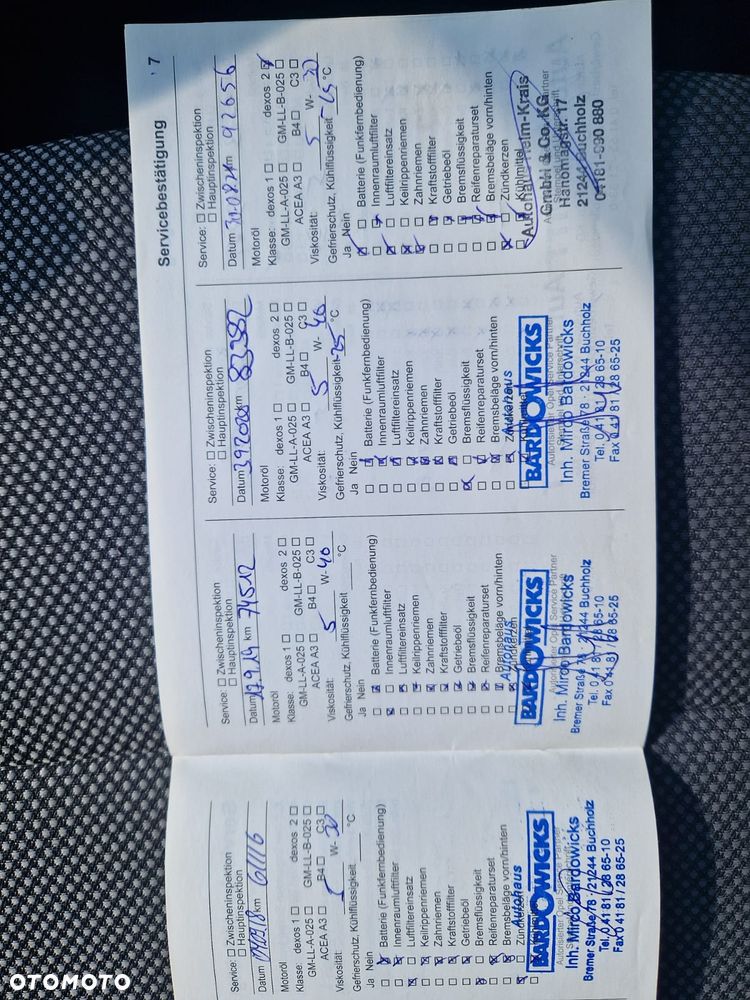 Servicebestätigung
7
Service: ☐ Zwischeninspektion
☐ Hauptinspektion
Datum 07.09.18 km 61116
Motoröl
Klasse: dexos 1 ☐ dexos 2 ☐
GM-LL-A-025 ☐ GM-LL-B-025 ☐
ACEA A3 ☐ B4 ☐ C3 ☐
Viskosität: 5 W- 30
Gefrierschutz, Kühlflüssigkeit °C
Ja Nein
Batterie (Funkfernbedienung)
Innenraumluftfilter
Luftfiltereinsatz
Keilrippenriemen
Zahnriemen
Kraftstofffilter
Getriebeöl
Bremsflüssigkeit
Reifenreparaturset
Bremsbeläge vorn/hinten
Autohaus
BARDOWICKS
Autorisierter Opel Service Partner
Inh. Mirco Bardowicks
Bremer Straße 78 / 21244 Buchholz
Tel. 0 41 81 / 28 65-10
Fax 0 41 81 / 28 65-25
Service: ☐ Zwischeninspektion
☐ Hauptinspektion
Datum 17.9.19 km 74512
Motoröl
Klasse: dexos 1 ☐ dexos 2 ☐
GM-LL-A-025 ☐ GM-LL-B-025 ☐
ACEA A3 ☐ B4 ☐ C3 ☐
Viskosität: 5 W- 40
Gefrierschutz, Kühlflüssigkeit °C
Ja Nein
Batterie (Funkfernbedienung)
Innenraumluftfilter
Luftfiltereinsatz
Keilrippenriemen
Zahnriemen
Kraftstofffilter
Getriebeöl
Bremsflüssigkeit
Reifenreparaturset
Bremsbeläge vorn/hinten
Zündkerzen
Autohaus
BARDOWICKS
Autorisierter Opel Service Partner
Inh. Mirco Bardowicks
Bremer Straße 78 · 21244 Buchholz
Tel. 0 41 81 / 28 65-10
Fax 0 41 81 / 28 65-25
Service: ☐ Zwischeninspektion
☐ Hauptinspektion
Datum km 82382
Motoröl
Klasse: dexos 1 ☐ dexos 2 ☐
GM-LL-A-025 ☐ GM-LL-B-025 ☐
ACEA A3 ☐ B4 ☐ C3 ☐
Viskosität: 5 W- 40
Gefrierschutz, Kühlflüssigkeit -25 °C
Ja Nein
Batterie (Funkfernbedienung)
Innenraumluftfilter
Luftfiltereinsatz
Keilrippenriemen
Zahnriemen
Kraftstofffilter
Getriebeöl
Bremsflüssigkeit
Reifenreparaturset
Bremsbeläge vorn/hinten
Autohaus
BARDOWICKS
Autorisierter Opel Service Partner
Inh. Mirco Bardowicks
Bremer Straße 78 · 21244 Buchholz
Tel. 0 41 81 / 28 65-10
Fax 0 41 81 / 28 65-25
Service: ☐ Zwischeninspektion
☐ Hauptinspektion
Datum 31.08.21 km 92656
Motoröl
Klasse: dexos 1 ☐ dexos 2 ☒
GM-LL-A-025 ☐ GM-LL-B-025 ☐
ACEA A3 ☐ B4 ☐ C3 ☐
Viskosität: 5 W- 30
Gefrierschutz, Kühlflüssigkeit -25 °C
Ja Nein
Batterie (Funkfernbedienung)
Innenraumluftfilter
Luftfiltereinsatz
Keilrippenriemen
Zahnriemen
Kraftstofffilter
Getriebeöl
Bremsflüssigkeit
Reifenreparaturset
Bremsbeläge vorn/hinten
Zündkerzen
Kühlmittel
GmbH & Co. KG
Hanomagstr. 17
21244 Buchholz
OTOMOTO